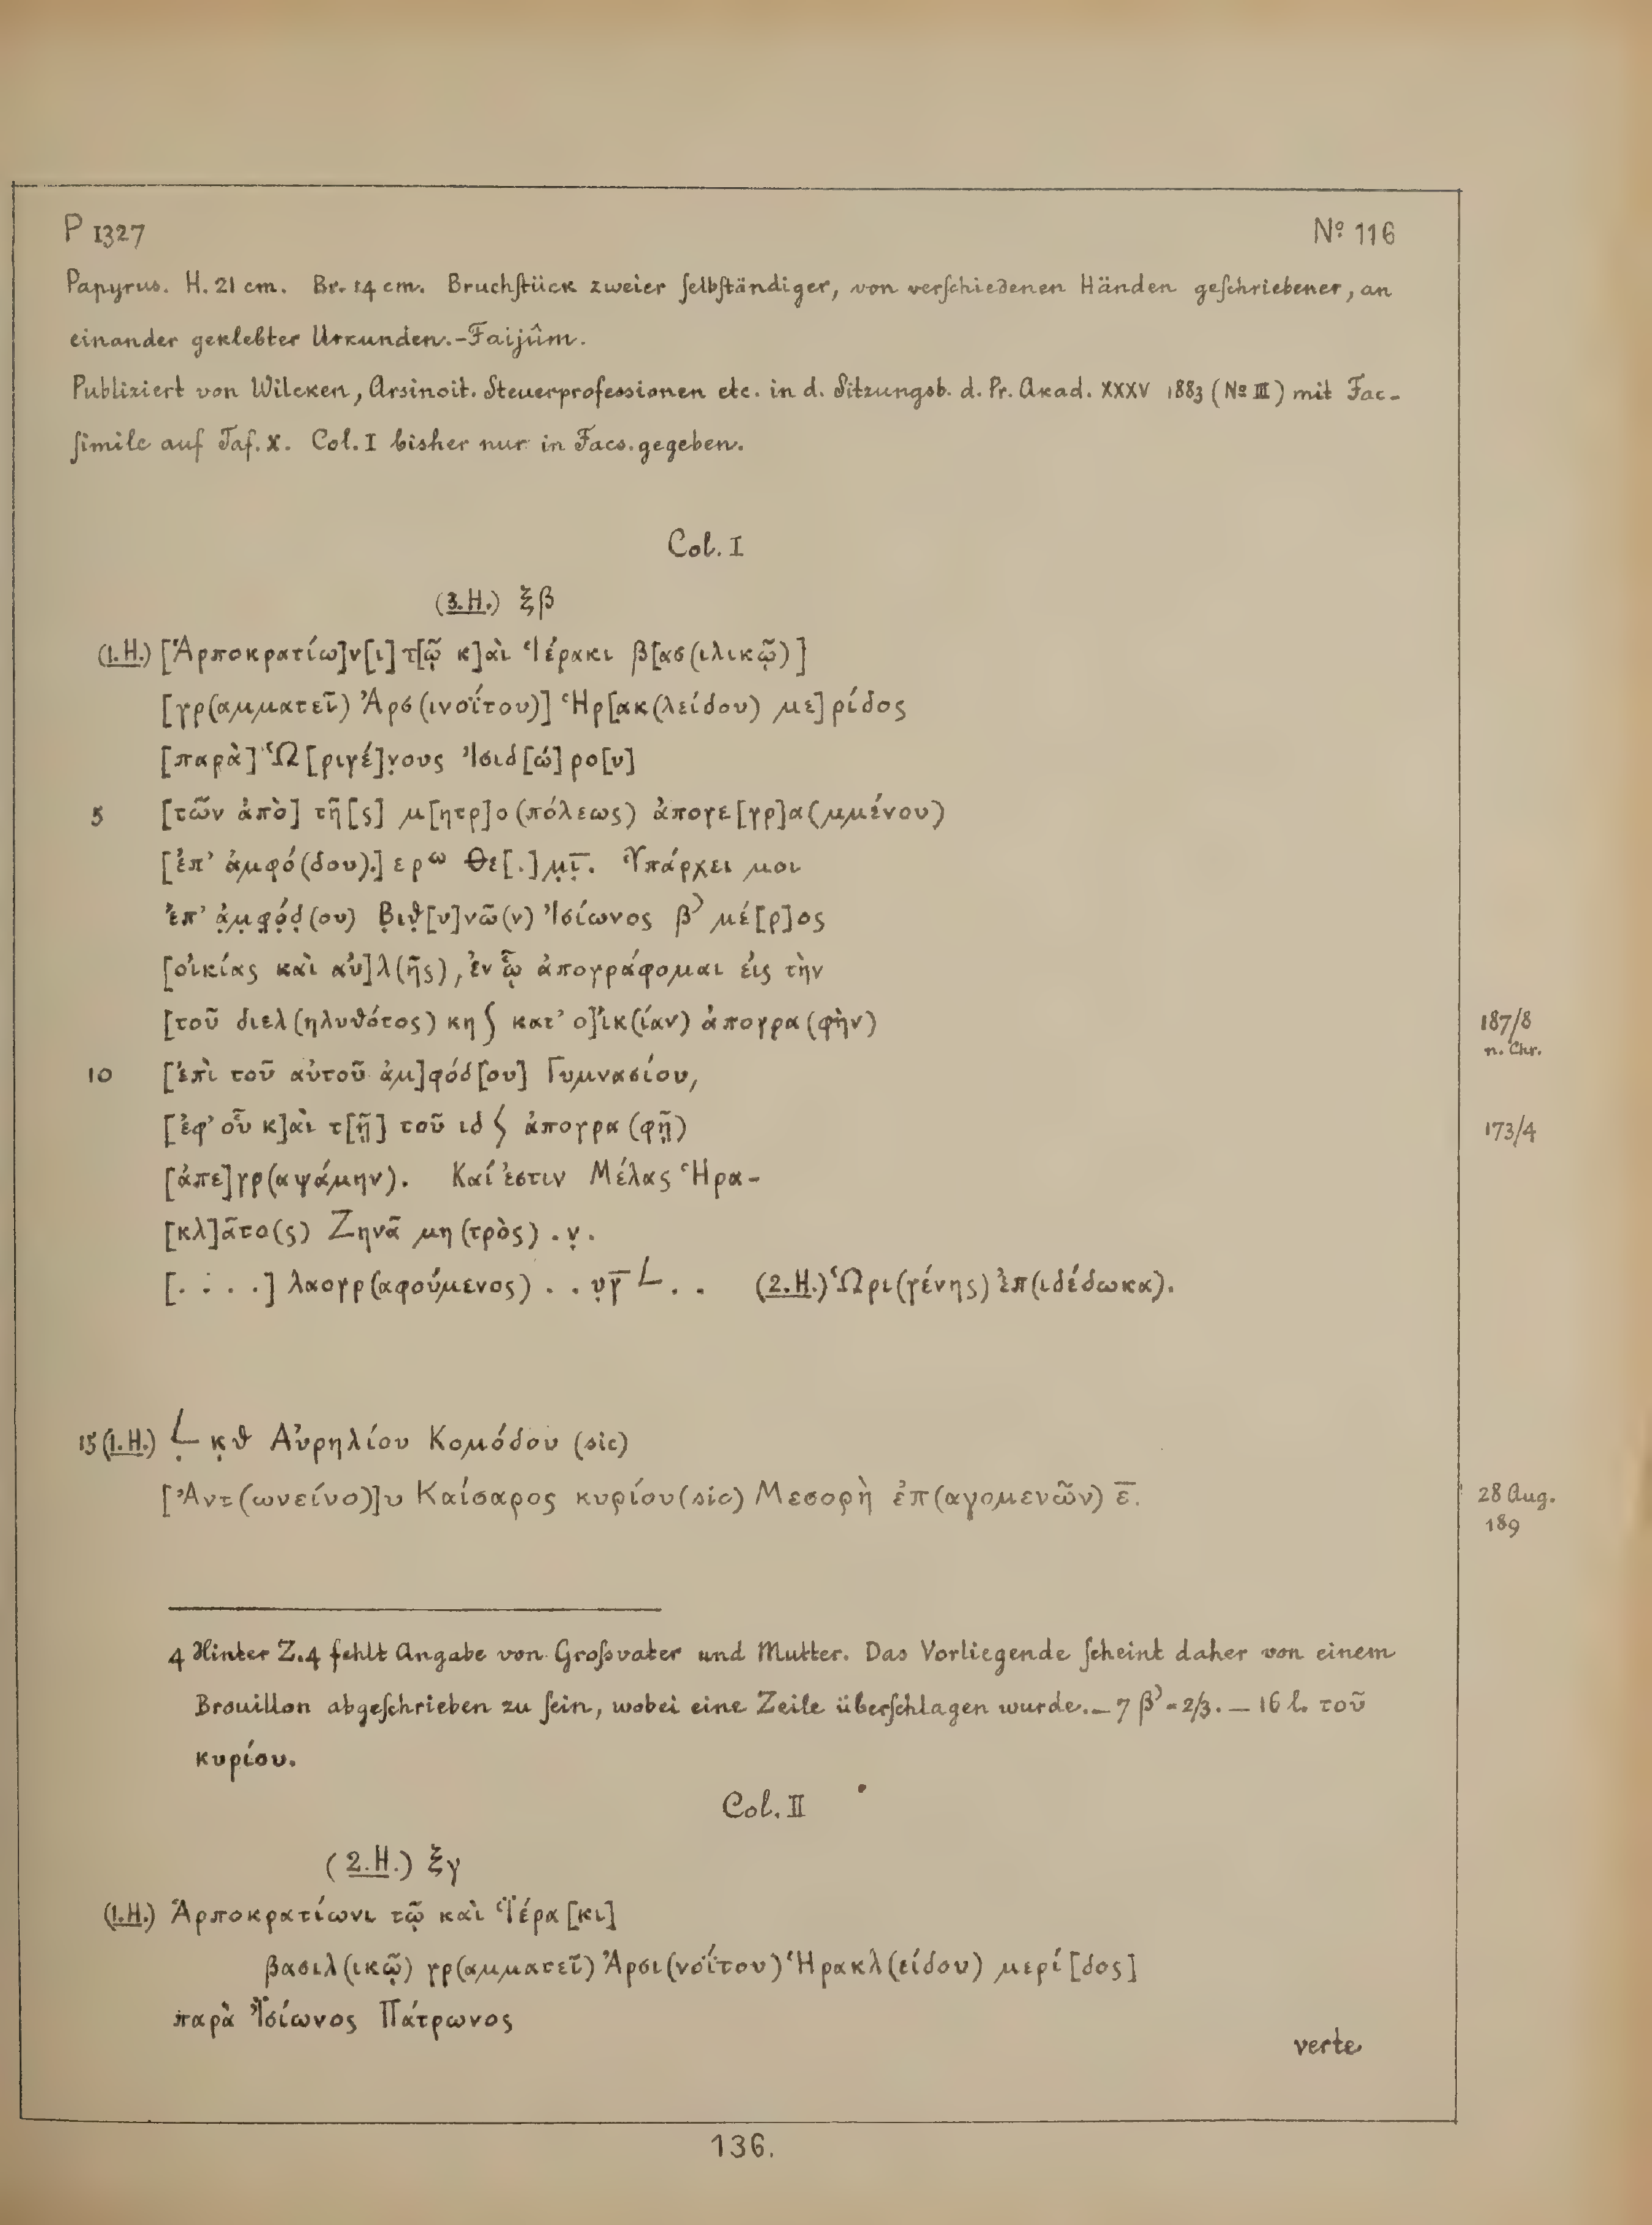 P 1327 Nº 116
Papyrus. H. 21 cm. Br. 14 cm. Bruchſtück zweier ſelbſtändiger, von verſchiedenen Händen geſchriebener, an
einander geklebter Urkunden.-Faijûm.
Publiziert von Wilcken, Arsinoit. Steuerprofessionen etc. in d. Sitzungsb. d. Pr. Akad. XXXV 1883 (Nº III) mit Fac-
ſimile auf Taf. X. Col. I bisher nur in Facs. gegeben.
Col. I
(3.H.) ξβ
(1.H.) [Ἁρποκρατίω]ν[ι] τ[ῷ κ]αὶ Ἱέρακι β[ασ(ιλικῷ)]
[γρ(αμματεῖ) Ἀρσ(ινοΐτου)] Ἡρ[ακ(λείδου) με]ρίδος
[παρὰ] Ὠ[ριγέ]ν̣ους Ἰσιδ[ώ]ρο[υ]
5 [τῶν ἀπὸ] τῆ[ς] μ[ητρ]ο(πόλεως) ἀπογε[γρ]α(μμένου)
[ἐπ' ἀμφό(δου).] ερω Θε[.]μ̣ι̣̅. Ὑπάρχει μοι
ἐπ' ἀ̣μ̣φ̣ό̣δ̣(ου) Β̣ιθ[υ]νῶ(ν) Ἰσίωνος β' μέ[ρ]ος
[οἰκίας καὶ αὐ]λ(ῆς), ἐν ᾧ ἀπογράφομαι εἰς τὴν
[τοῦ διελ(ηλυθότος) κη ʃ κατ' ο]ἰκ(ίαν) ἀπογρα(φὴν) 187/8
n. Chr.
10 [ἐπὶ τοῦ αὐτοῦ ἀμ]φόδ[ου] Γυμνασίου,
[ἐφ' οὗ κ]αὶ τ[ῇ] τοῦ ιδ ʃ ἀπογρα(φῇ) 173/4
[ἀπε]γρ(αψάμην). Καί ἐστιν Μέλας Ἡρα-
[κλ]ᾶτο(ς) Ζηνᾶ μη(τρὸς) . ν̣.
[. . . .] λαογρ(αφούμενος) . . υ̣γ̅ L . . (2.H.) Ὠρι(γένης) ἐπ(ιδέδωκα).
15 (1.H.) Ḷ κ̣θ Αὐρηλίου Κομόδου (sic)
[Ἀντ(ωνείνο)]υ Καίσαρος κυρίου (sic) Μεσορὴ ἐπ(αγομενῶν) ε̅. 28 Aug.
189
4 Hinter Z.4 fehlt Angabe von Groſsvater und Mutter. Das Vorliegende ſcheint daher von einem
Brouillon abgeſchrieben zu ſein, wobei eine Zeile überſchlagen wurde. — 7 β' = 2/3. — 16 l. τοῦ
κυρίου.
Col. II
(2.H.) ξγ
(1.H.) Ἁρποκρατίωνι τῷ καὶ Ἱέρα[κι]
βασιλ(ικῷ) γρ(αμματεῖ) Ἀρσι(νοΐτου) Ἡρακλ(είδου) μερί[δος]
παρὰ Ἰσίωνος Πάτρωνος
verte
136.